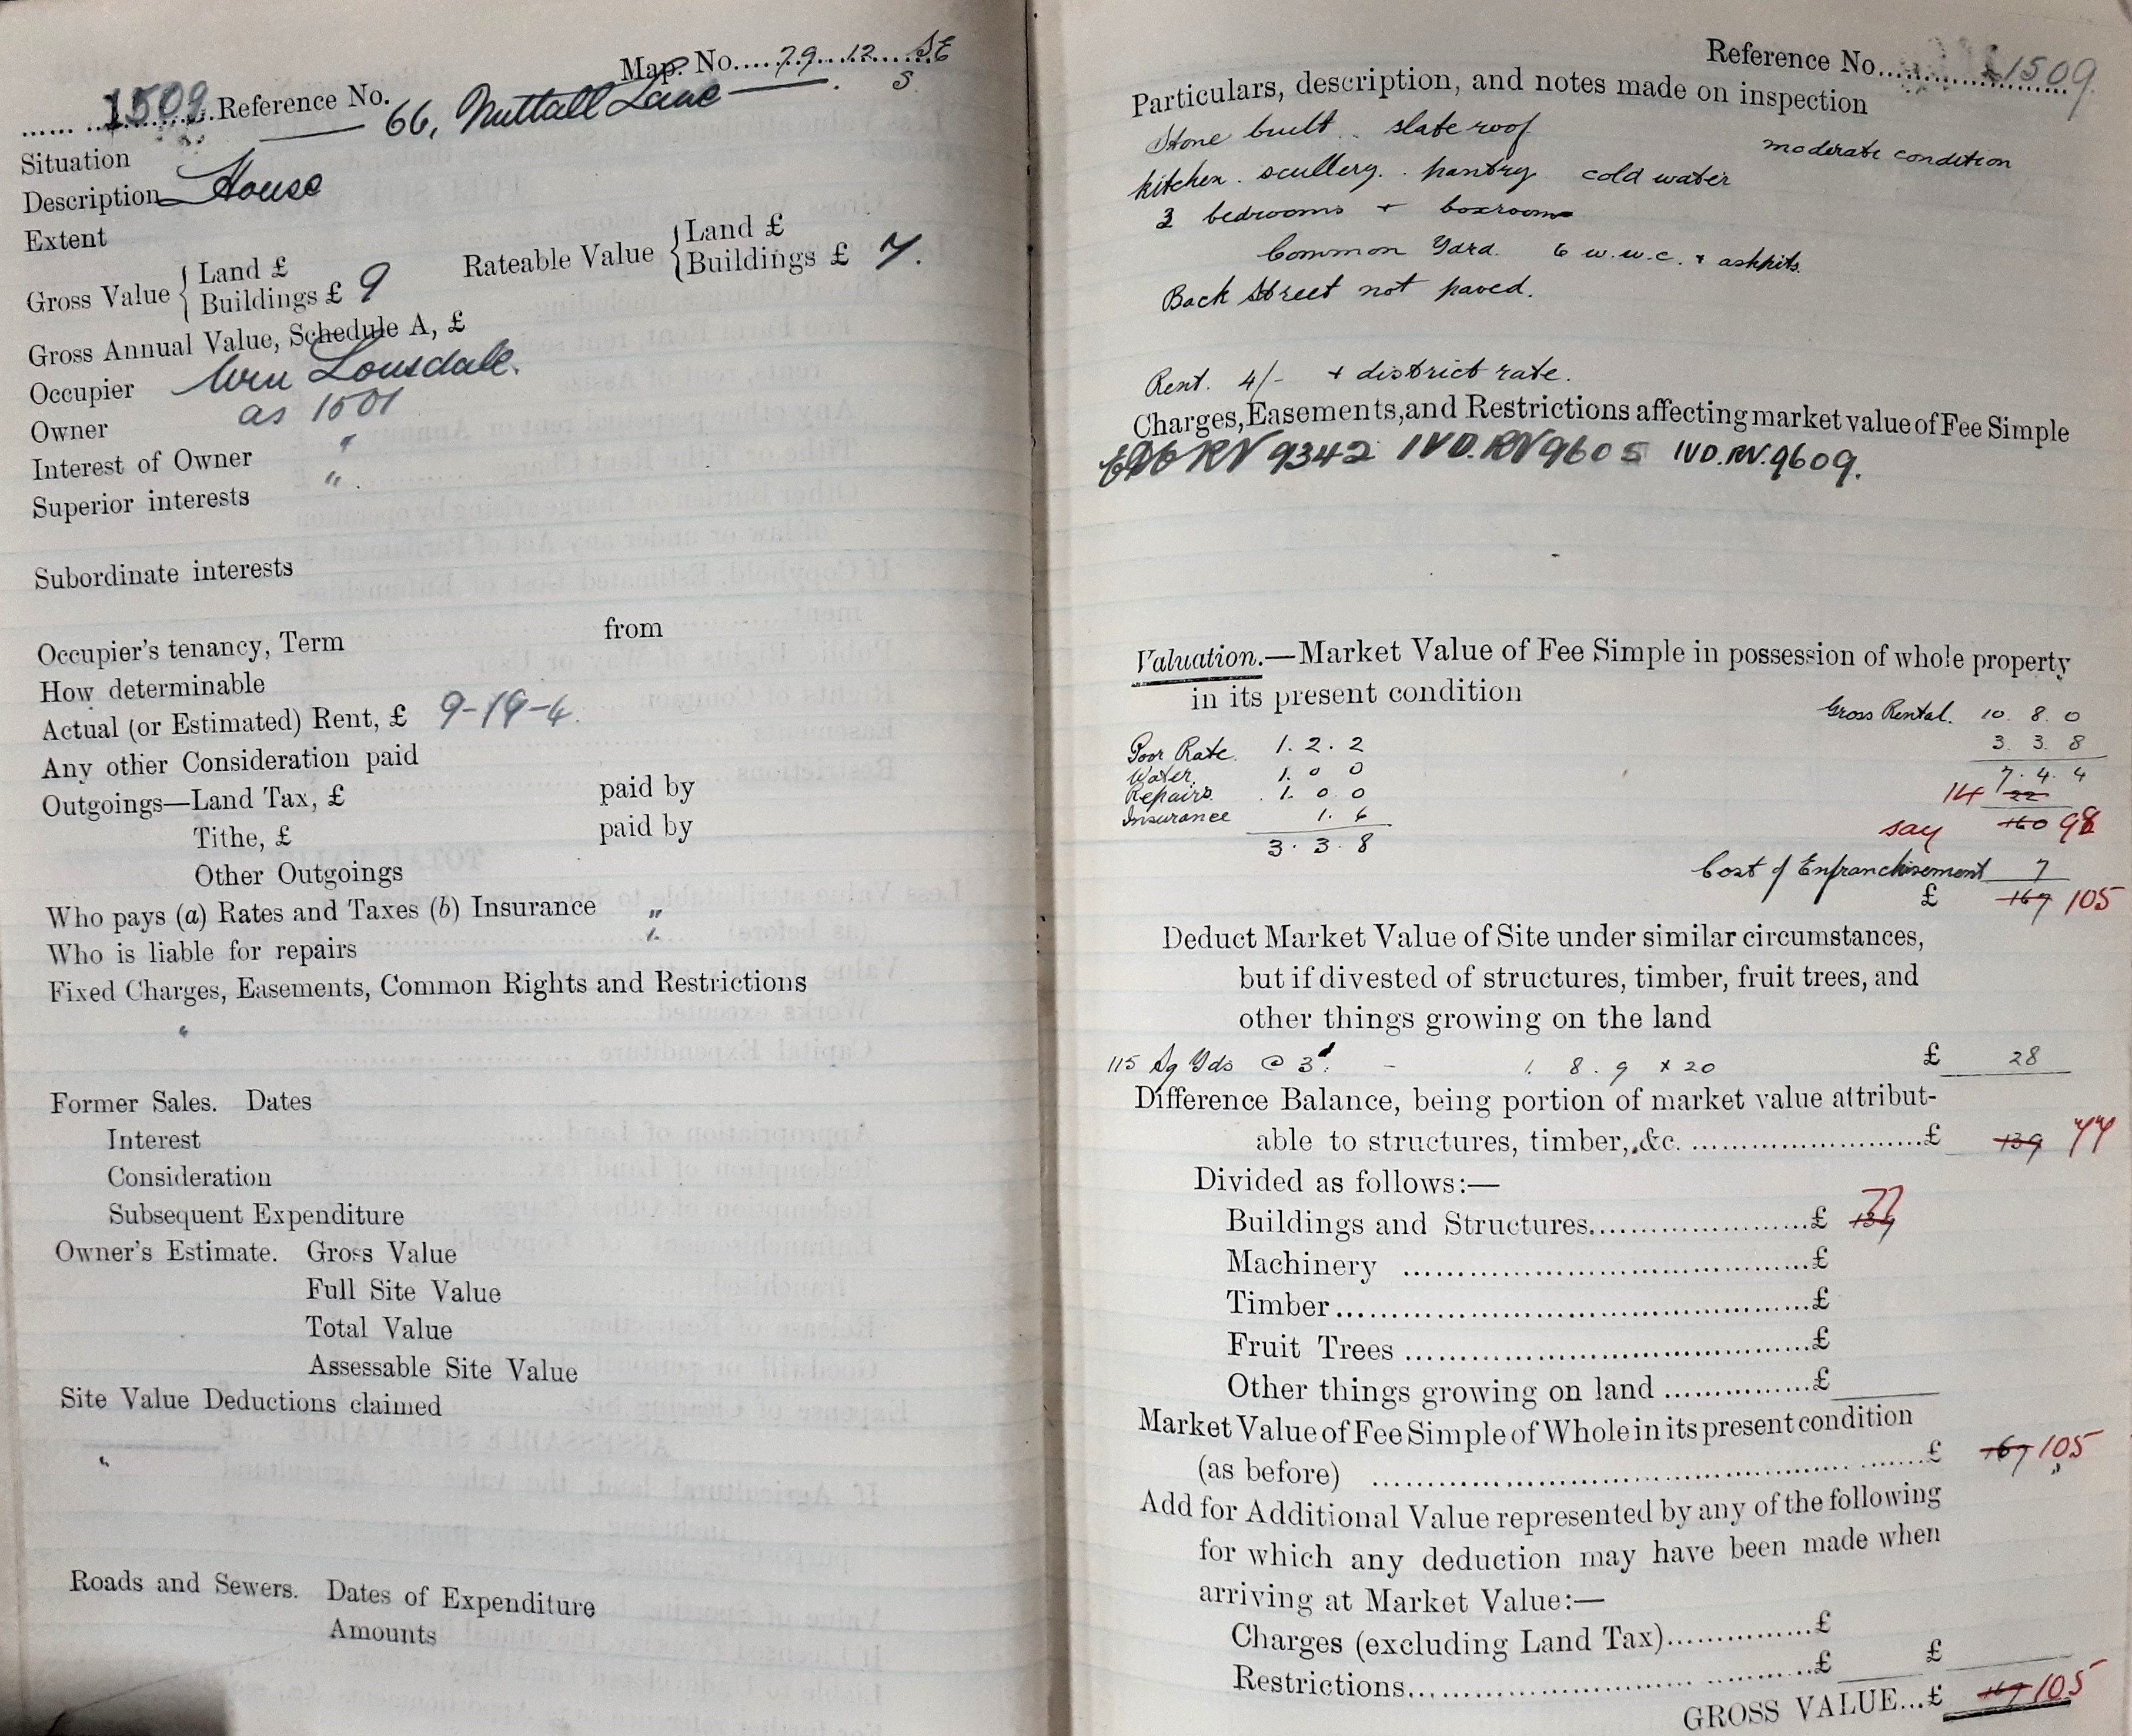 Map. No. 79 12 SE
S
1509 Reference No.
Situation 66, Nuttall Lane
Description House
Extent
Gross Value { Land £
Buildings £ 9
Rateable Value { Land £
Buildings £ 7.
Gross Annual Value, Schedule A, £
Occupier Wm Lonsdale.
Owner as 1501
Interest of Owner "
Superior interests "
Subordinate interests
Occupier's tenancy, Term from
How determinable
Actual (or Estimated) Rent, £ 9-19-4.
Any other Consideration paid
Outgoings—Land Tax, £ paid by
Tithe, £ paid by
Other Outgoings
Who pays (a) Rates and Taxes (b) Insurance "
Who is liable for repairs "
Fixed Charges, Easements, Common Rights and Restrictions
"
Former Sales. Dates
Interest
Consideration
Subsequent Expenditure
Owner's Estimate. Gross Value
Full Site Value
Total Value
Assessable Site Value
Site Value Deductions claimed
"
Roads and Sewers. Dates of Expenditure
Amounts
Reference No. 1509
Particulars, description, and notes made on inspection
Stone built. slate roof moderate condition
kitchen. scullery. pantry cold water
3 bedrooms + boxroom
Common Yard. 6 w.w.c. + ashpits.
Back Street not paved.
Rent. 4/- + district rate.
Charges, Easements, and Restrictions affecting market value of Fee Simple
RV 9342 IVD.RV 9605 IVD.RV.9609.
Valuation.—Market Value of Fee Simple in possession of whole property
in its present condition
Gross Rental. 10 . 8 . 0
Poor Rate. 1 . 2 . 2 3 . 3 . 8
Water. 1 . 0 0 7 . 4 . 4
Repairs. 1 . 0 0 14 22
Insurance 1 . 6 say 160 98
3 . 3 . 8
Cost of Enfranchisement 7
£ 167 105
Deduct Market Value of Site under similar circumstances,
but if divested of structures, timber, fruit trees, and
other things growing on the land
115 Sq Yds @ 3d. - 1 . 8 . 9 x 20 £ 28
Difference Balance, being portion of market value attribut-
able to structures, timber, &c. £ 139 77
Divided as follows:—
Buildings and Structures £ 139 77
Machinery £
Timber £
Fruit Trees £
Other things growing on land £
Market Value of Fee Simple of Whole in its present condition
(as before) £ 167 105
Add for Additional Value represented by any of the following
for which any deduction may have been made when
arriving at Market Value:—
Charges (excluding Land Tax) £
Restrictions £ £
GROSS VALUE...£ 167 105